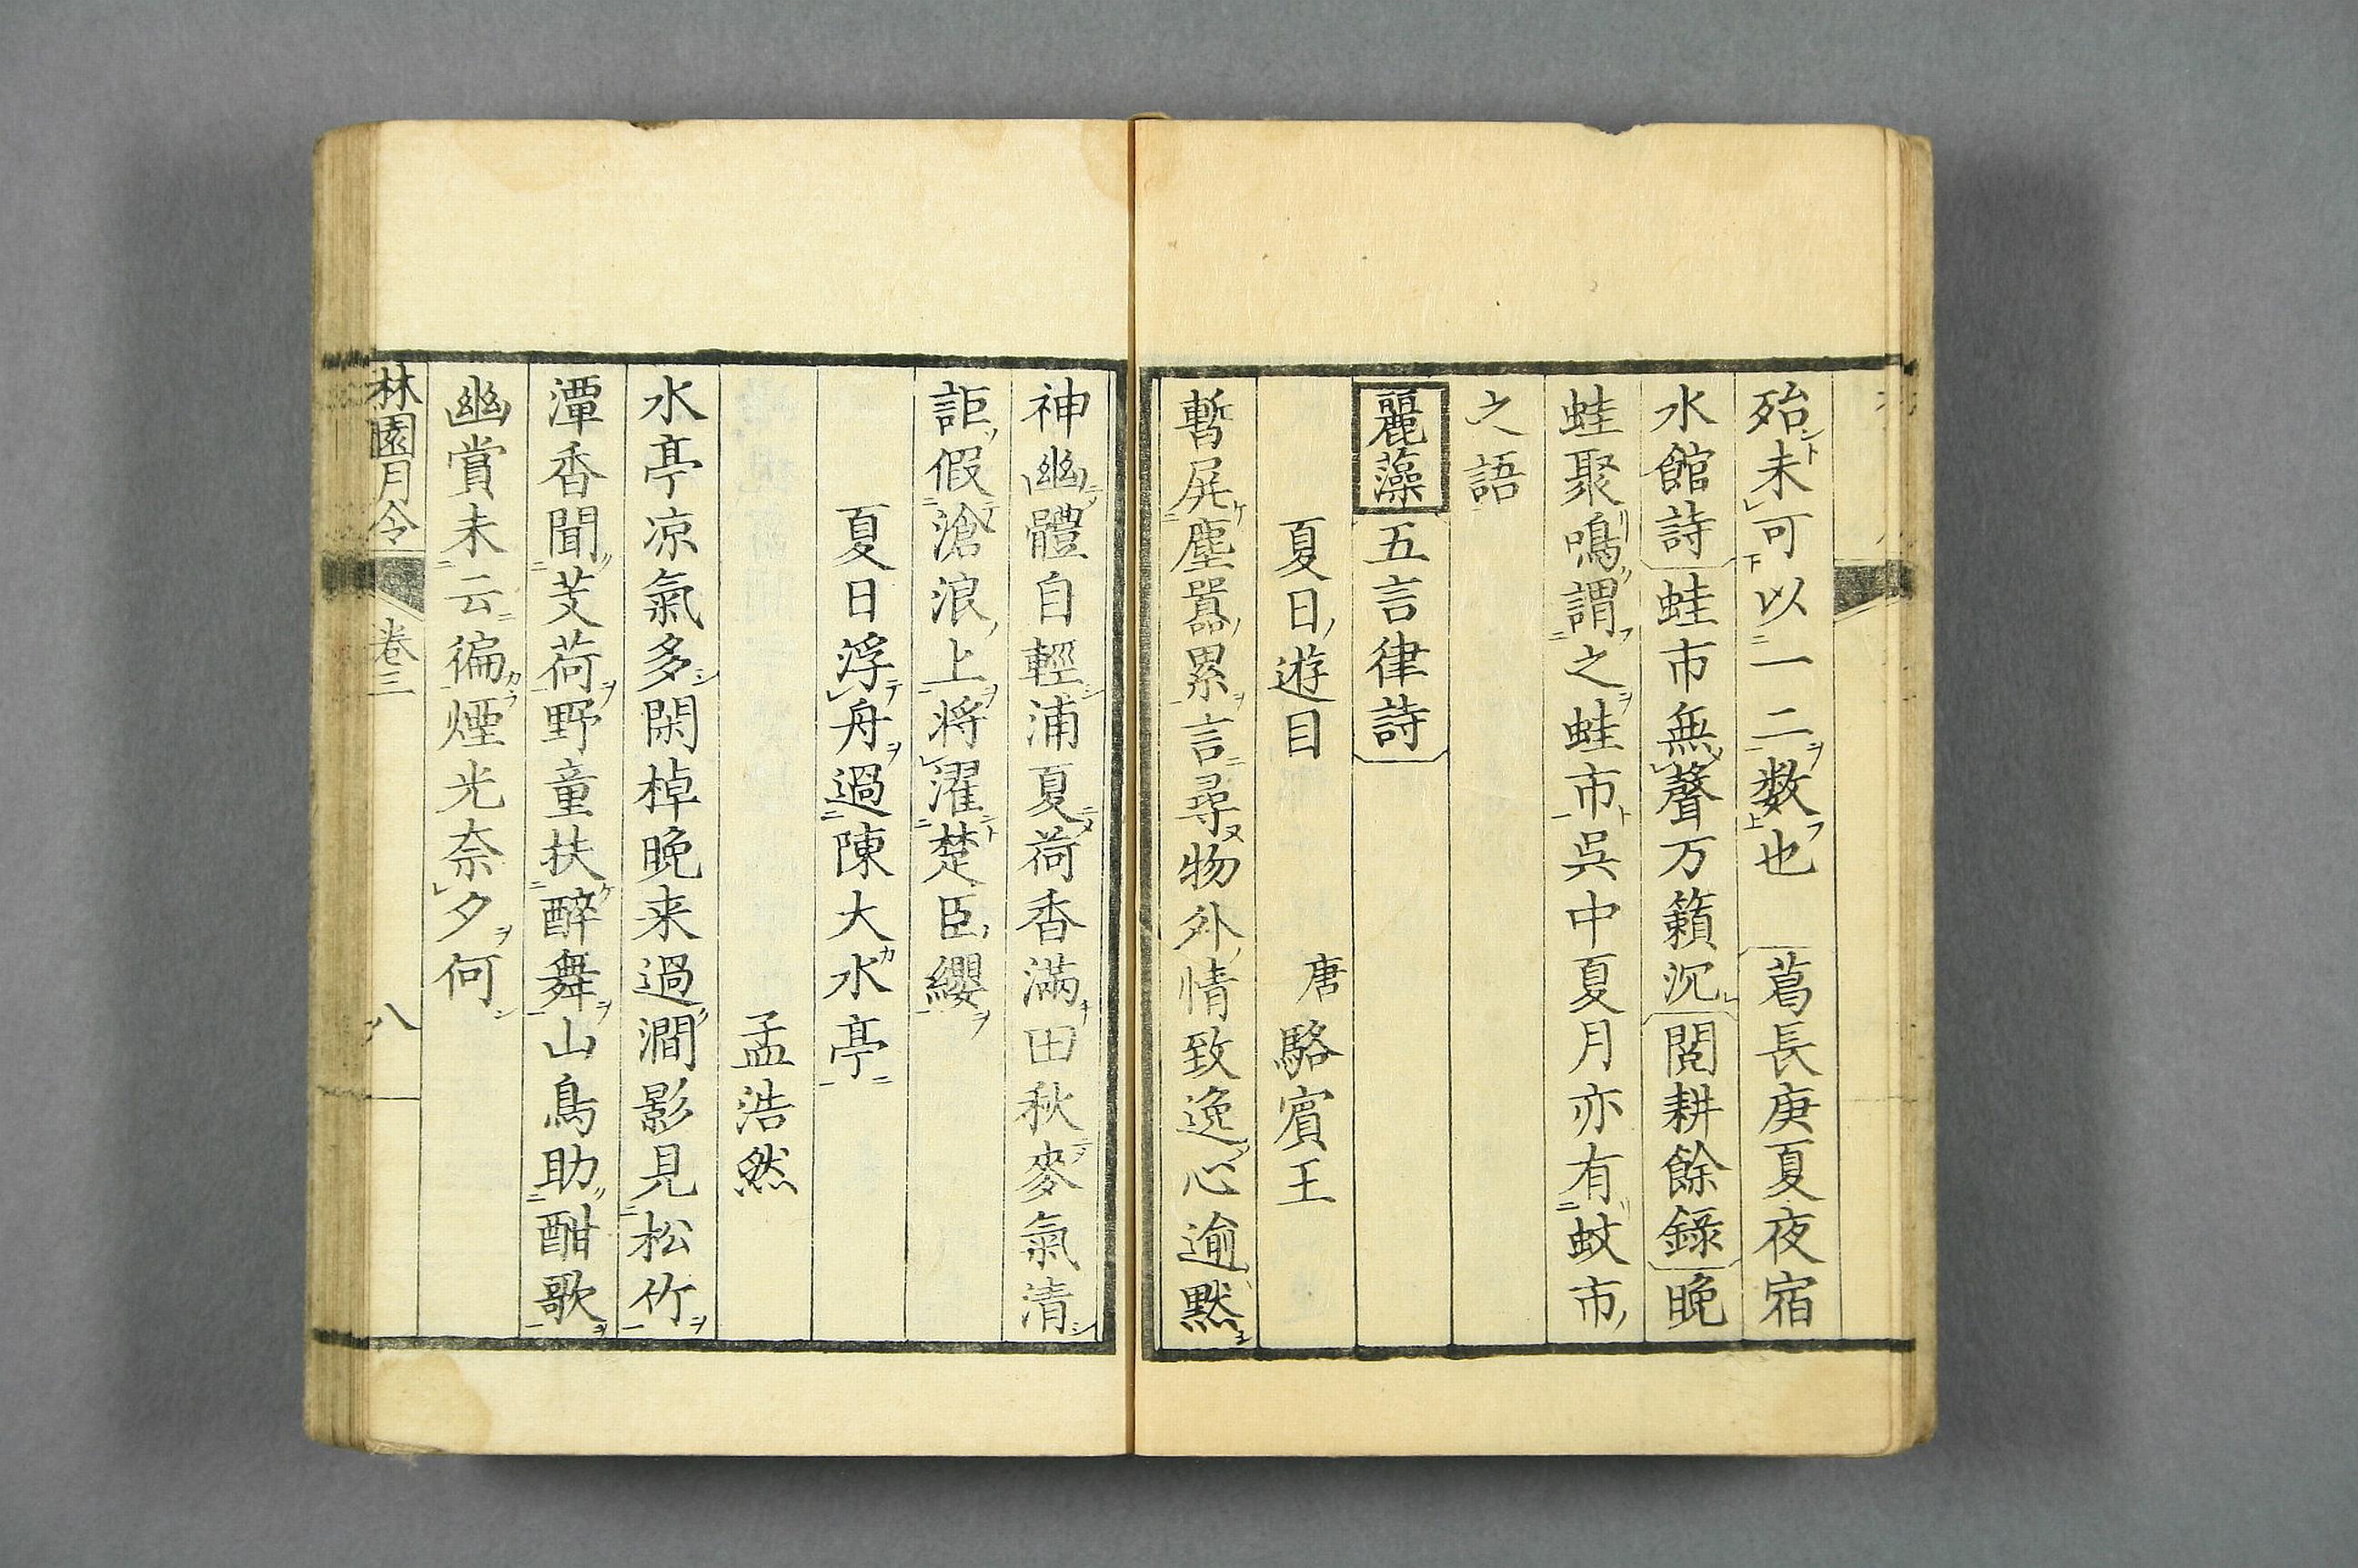 殆未可以一二数也　葛長庚夏夜宿
水館詩　蛙市無聲万籟沉　閲耕餘錄　晩
蛙聚鳴謂之蛙市呉中夏月亦有蚊市
之語
麗藻　五言律詩
夏日遊目　唐　駱賓王
暫屏塵囂累言尋物外情致逸心逾黙
神幽體自輕浦夏荷香滿田秋麥氣清
詎假滄浪上将濯楚臣纓
夏日浮舟過陳大水亭
孟浩然
水亭凉氣多閑棹晩来過澗影見松竹
潭香聞芰荷野童扶醉舞山鳥助酣歌
幽賞未云徧煙光奈夕何
林園月令　卷三　八